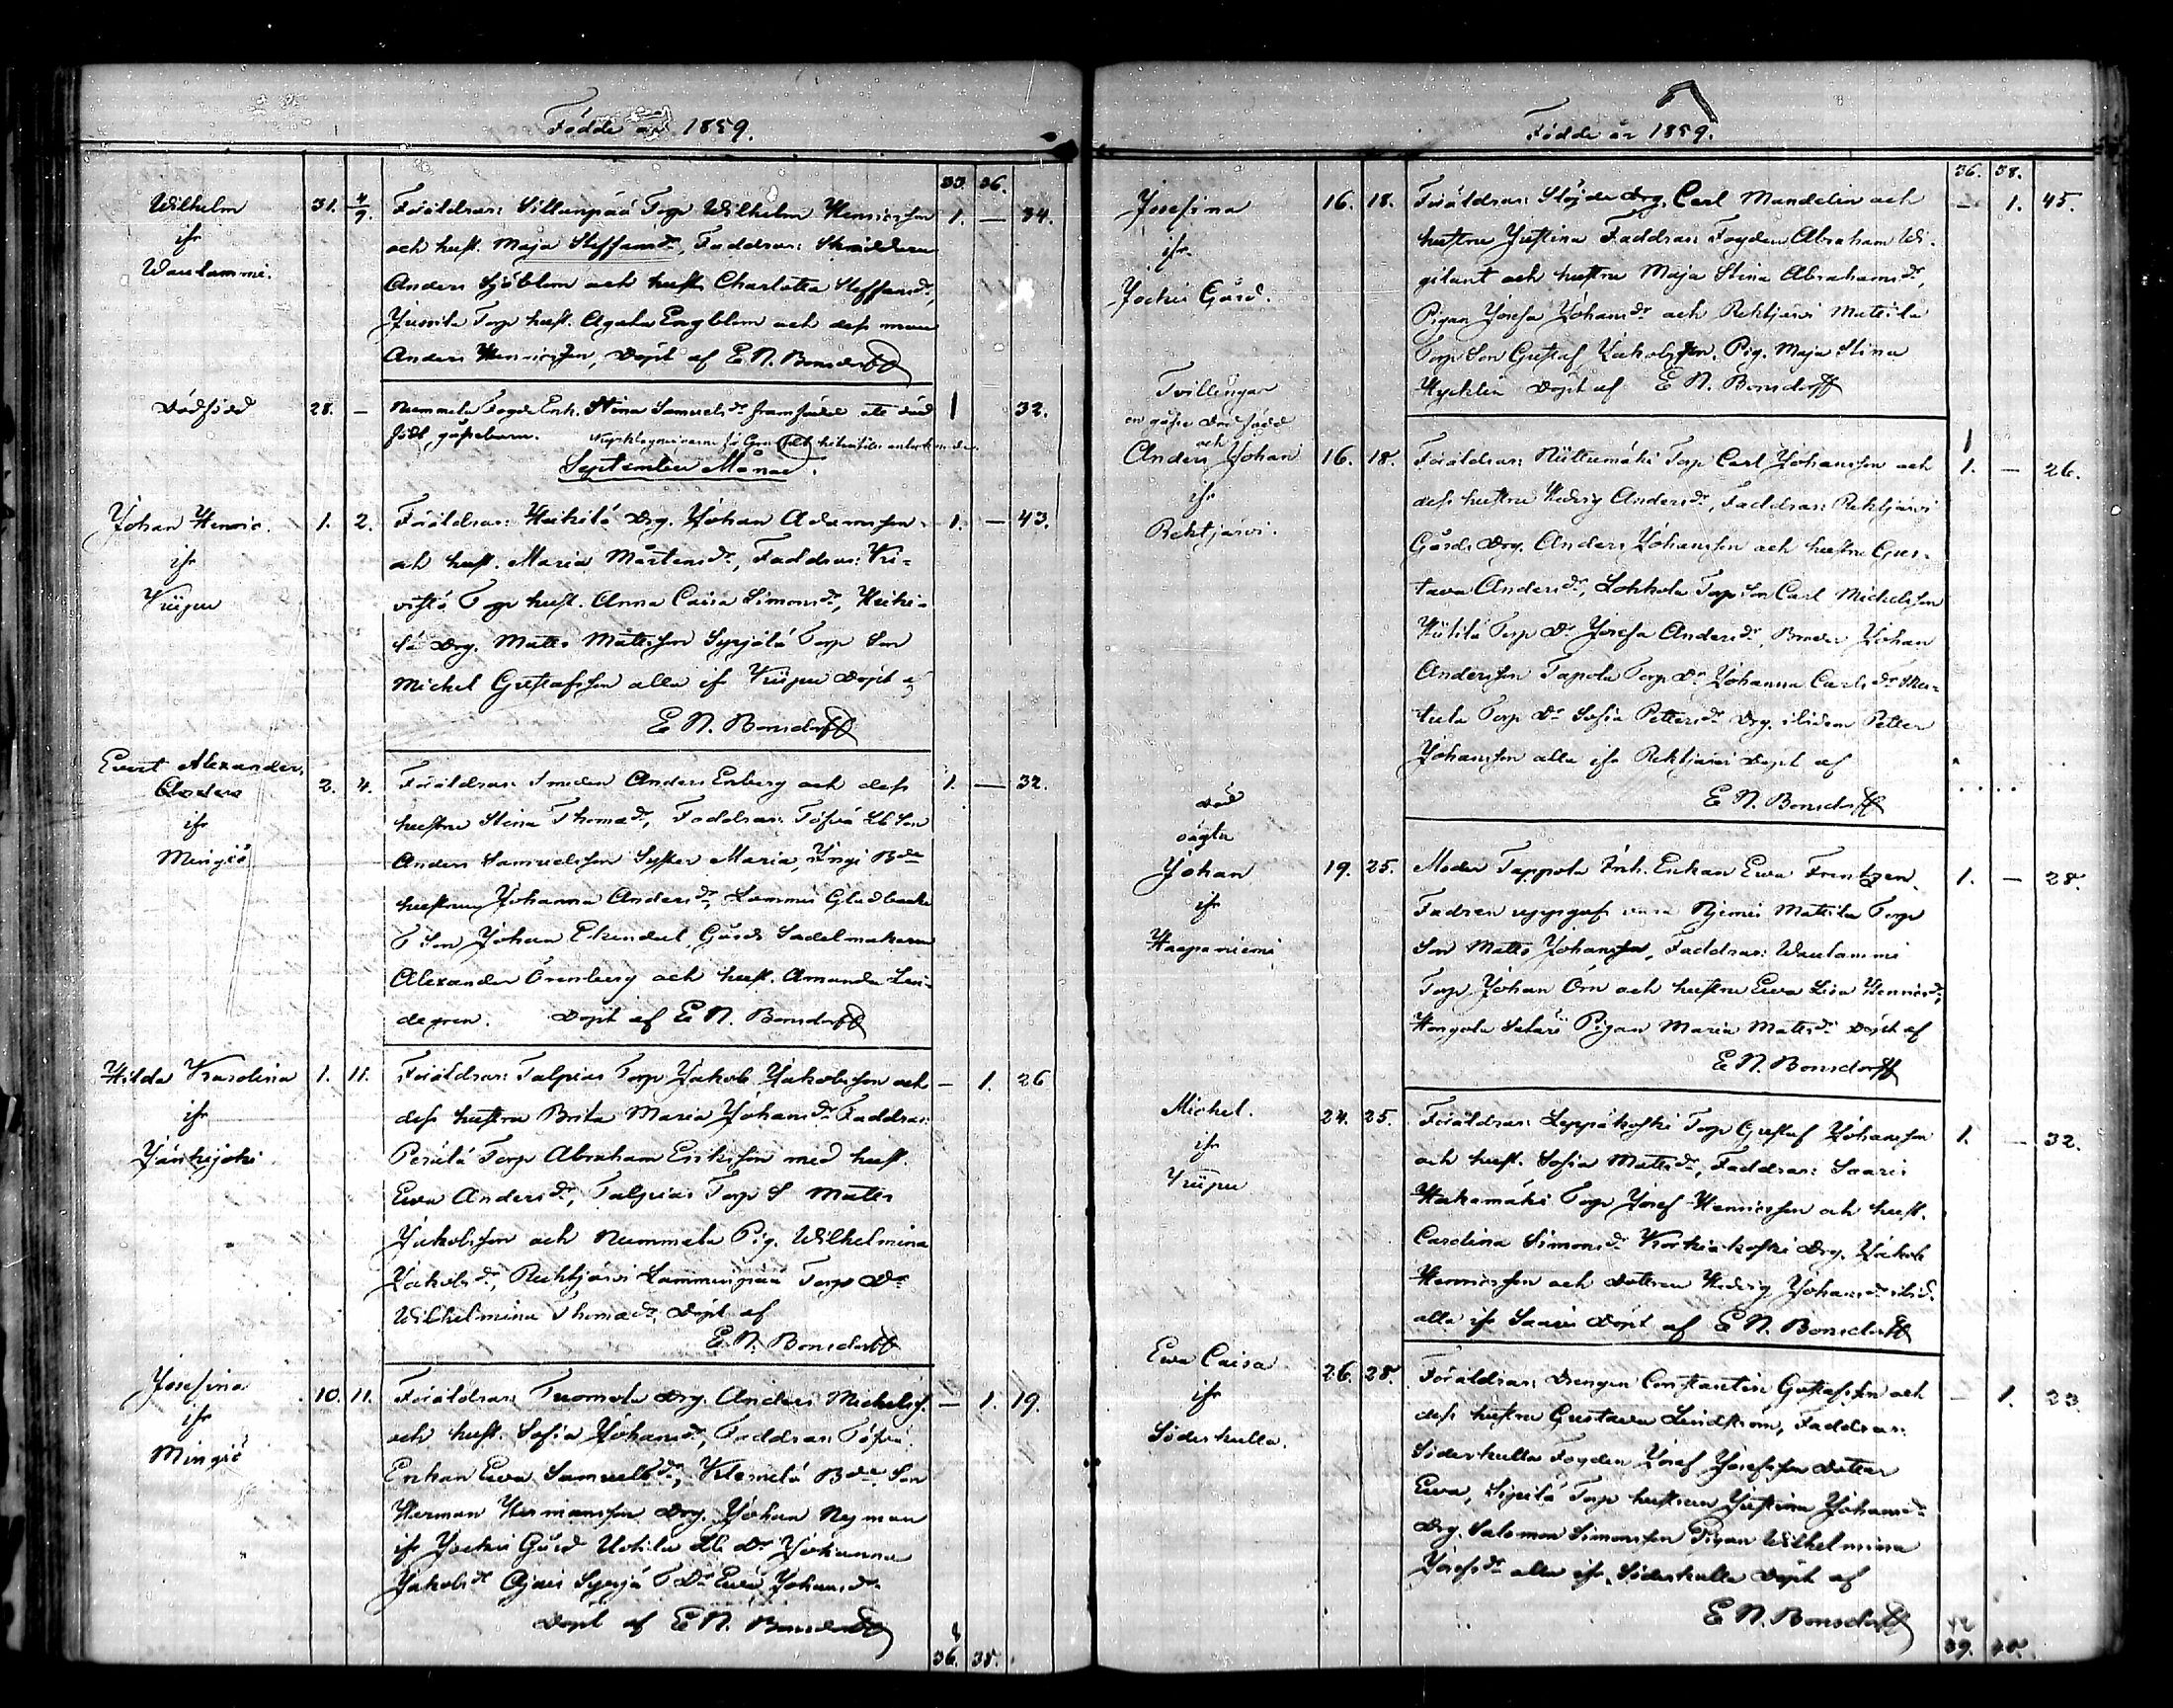 Födde år 1859.
33. 36.
Wilhelm 31. 4/9. Föräldrar: Sillanpää Torp. Wilhelm Henricsson 1. — 34.
ifr och hust. Maja Steffansdr, Faddrar: Skräddare
Waulammi. Anders Sjöblom och hustr. Charlotta Steffansdr,
Jussila Torp hust. Agata Engblom och dess man
Anders Henricsson, Döpt af E N. Bonsdorff
Dödfödd 28. — Nummela Torp Enk. Stina Samuelsdr framfödde ett död 1 32.
födt gossebarn.
September Månad.
Johan Henric. 1. 2. Föräldrar: Heikilä Drg. Johan Adamsson 1. — 43.
ifr och hust. Maria Mårtensdr, Faddrar: Kri-
Kriipu vistä Torp hust. Anna Caisa Simonsdr, Heiki-
lä Drg. Matts Mattsson Syrjälä Torp Son
Michel Gustafsson alla ifr Kriipu Döpt af
E N. Bonsdorff
Evert Alexander.
2. 4. Föräldrar: Smeden Anders Enberg och dess 1. — 32.
ifr hustru Stina Thomadr, Faddrar: Töfvä Lb Son
Mingiö Anders Samuelsson Syster Maria, Yngi Bde
hustrun Johanna Andersdr, Lammi Gladbacka
T Son Johan Ekendal, Gårds Sadelmakaren
Alexander Örnberg och hust. Amanda Lin-
degren. Döpt af E N. Bonsdorff
Hilda Karolina 1. 11. Föräldrar: Talpias Torp Jakob Jakobsson och — 1. 26
ifr dess hustru Brita Maria Johansdr. Faddrar:
Jänhijoki Perälä Torp Abraham Eriksson med hust.
Ewa Andersdr, Talpias Torp S Matts
Jakobsson och Nummela Pig. Wilhelmina
Jakobsdr, Rehtjärvi Lamminpää Torp Dr
Wilhelmina Thomadr, Döpt af
E. N. Bonsdorff
Josefina 10. 11. Föräldrar: Tuomola Drg. Anders Michelss. — 1. 19.
ifr och hust. Sofia Johansdr, Faddrar: Töfvä
Mingiö Enkan Ewa Samuelsdr, Klemelä Bde Son
Herman Hermansson Drg. Johan Nyman
ifr Jockis Gård Uotila Lb Dr Johanna
Jakobsdr Ojais Syrjä T Dr Ewa Johansdr
Döpt af E N. Bonsdorff
36. 38.
Födde år 1859.
36. 38.
Josefina 16. 18. Föräldrar: Slöjde Drg. Carl Mandelin och — 1. 45.
ifr hustru Justina Faddrar: Fogden Abraham Wi-
Jockis Gård. gilant och hustru Maja Stina Abrahamsdr,
Pigan Josefa Johansdr och Rehtjärvi Mattila
Torp Son Gustaf Jakobsson, Pig. Maja Stina
Hycklin Döpt af E N. Bonsdorff
Tvillingar
en gosse Dödfödd
och 1
Anders Johan 16. 18. Föräldrar: Niittumäki Torp Carl Johansson och 1. — 26.
ifr dess hustru Hedvig Andersdr, Faddrar: Rehtjärvi
Rehtjärvi. Gårds Drg. Anders Johansson och hustru Gus-
tava Andersdr, Lohkola Torp Son Carl Michelsson
Torp Dr Josefa Andersdr, Johan
Andersson Tapola Torp Dr Johanna Carlsdr
tula Torp Dr Sofia Pettersdr Drg. ibidem Petter
Johansson alla ifr Rehtjärvi Döpt af
E N. Bonsdorff
Död
oägta
Johan 19. 25. Moder Tappola Inh. Enkan Ewa Frentzen. 1. — 28.
ifr Fadren uppgafs vara Njemis Mattila Torp
Haapaniemi Son Matts Johansson, Faddrar: Waulammi
Torp Johan Örn och hustru Ewa Lisa Henricsdr,
Hongola Pigan Maria Mattsdr Döpt af
E N. Bonsdorff
Michel. 24. 25. Föräldrar: Leppäkoski Torp Gustaf Johansson 1. — 32.
ifr och hust. Sofia Mattsdr, Faddrar: Saaris
Kriipu Torp Josef Henricsson och hust.
Carolina Simonsdr Korkiakoski Drg. Jakob
Henricsson och Dottren Hedvig Johansdr ibid.
alla ifr Saaris Döpt af E N. Bonsdorff
Ewa Caisa 26. 28. Föräldrar: Drengen Constantin Gustafsson och — 1. 23
ifr dess hustru Gustava Lindström, Faddrar:
Söderkulla. Söderkulla Fogden Josef Josefsson Dotter
Ewa, Sipilä Torp hustrun Justina Johansdr
Drg. Salomon Simonsson Pigan Wilhelmina
Josefsdr alla ifr Söderkulla Döpt af
E N. Bonsdorff
39.